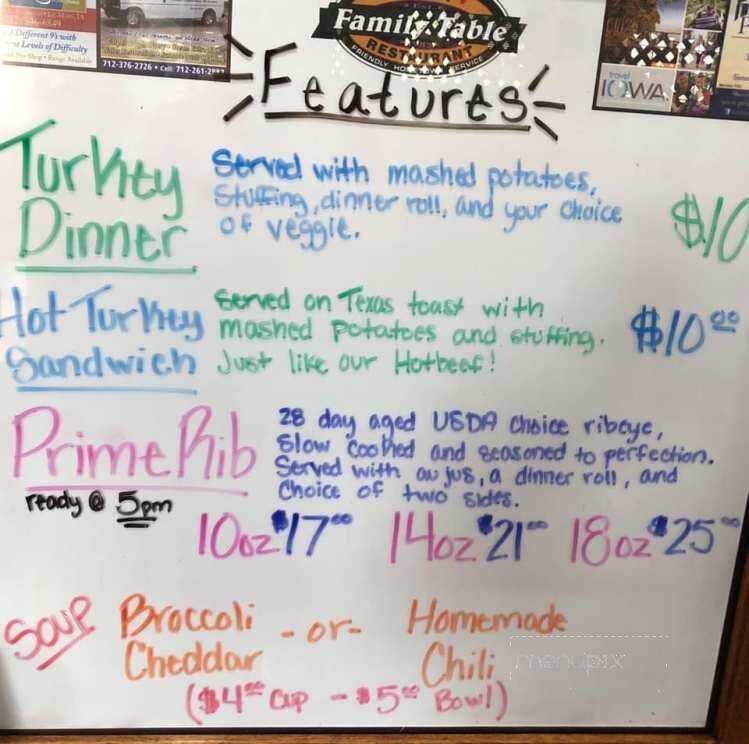 3 Different 9's with
Levels of Difficulty
712-376-2726 • Cell: 712-261-2883
Family Table
RESTAURANT
FRIENDLY SERVICE
travel
IOWA
Features
Turkey
Dinner
Served with mashed potatoes,
Stuffing, dinner roll, and your choice
of veggie.
$10
Hot Turkey
Sandwich
Served on Texas toast with
mashed potatoes and stuffing.
Just like our Hotbeef!
$10.00
Prime Rib
ready @ 5pm
28 day aged USDA Choice ribeye,
Slow Cooked and seasoned to perfection.
Served with au jus, a dinner roll, and
Choice of two sides.
10oz $17.00 14oz $21.00 18oz $25.00
Soup
Broccoli
Cheddar
-or-
Homemade
Chili
($4.00 Cup - $5.00 Bowl)
menupix